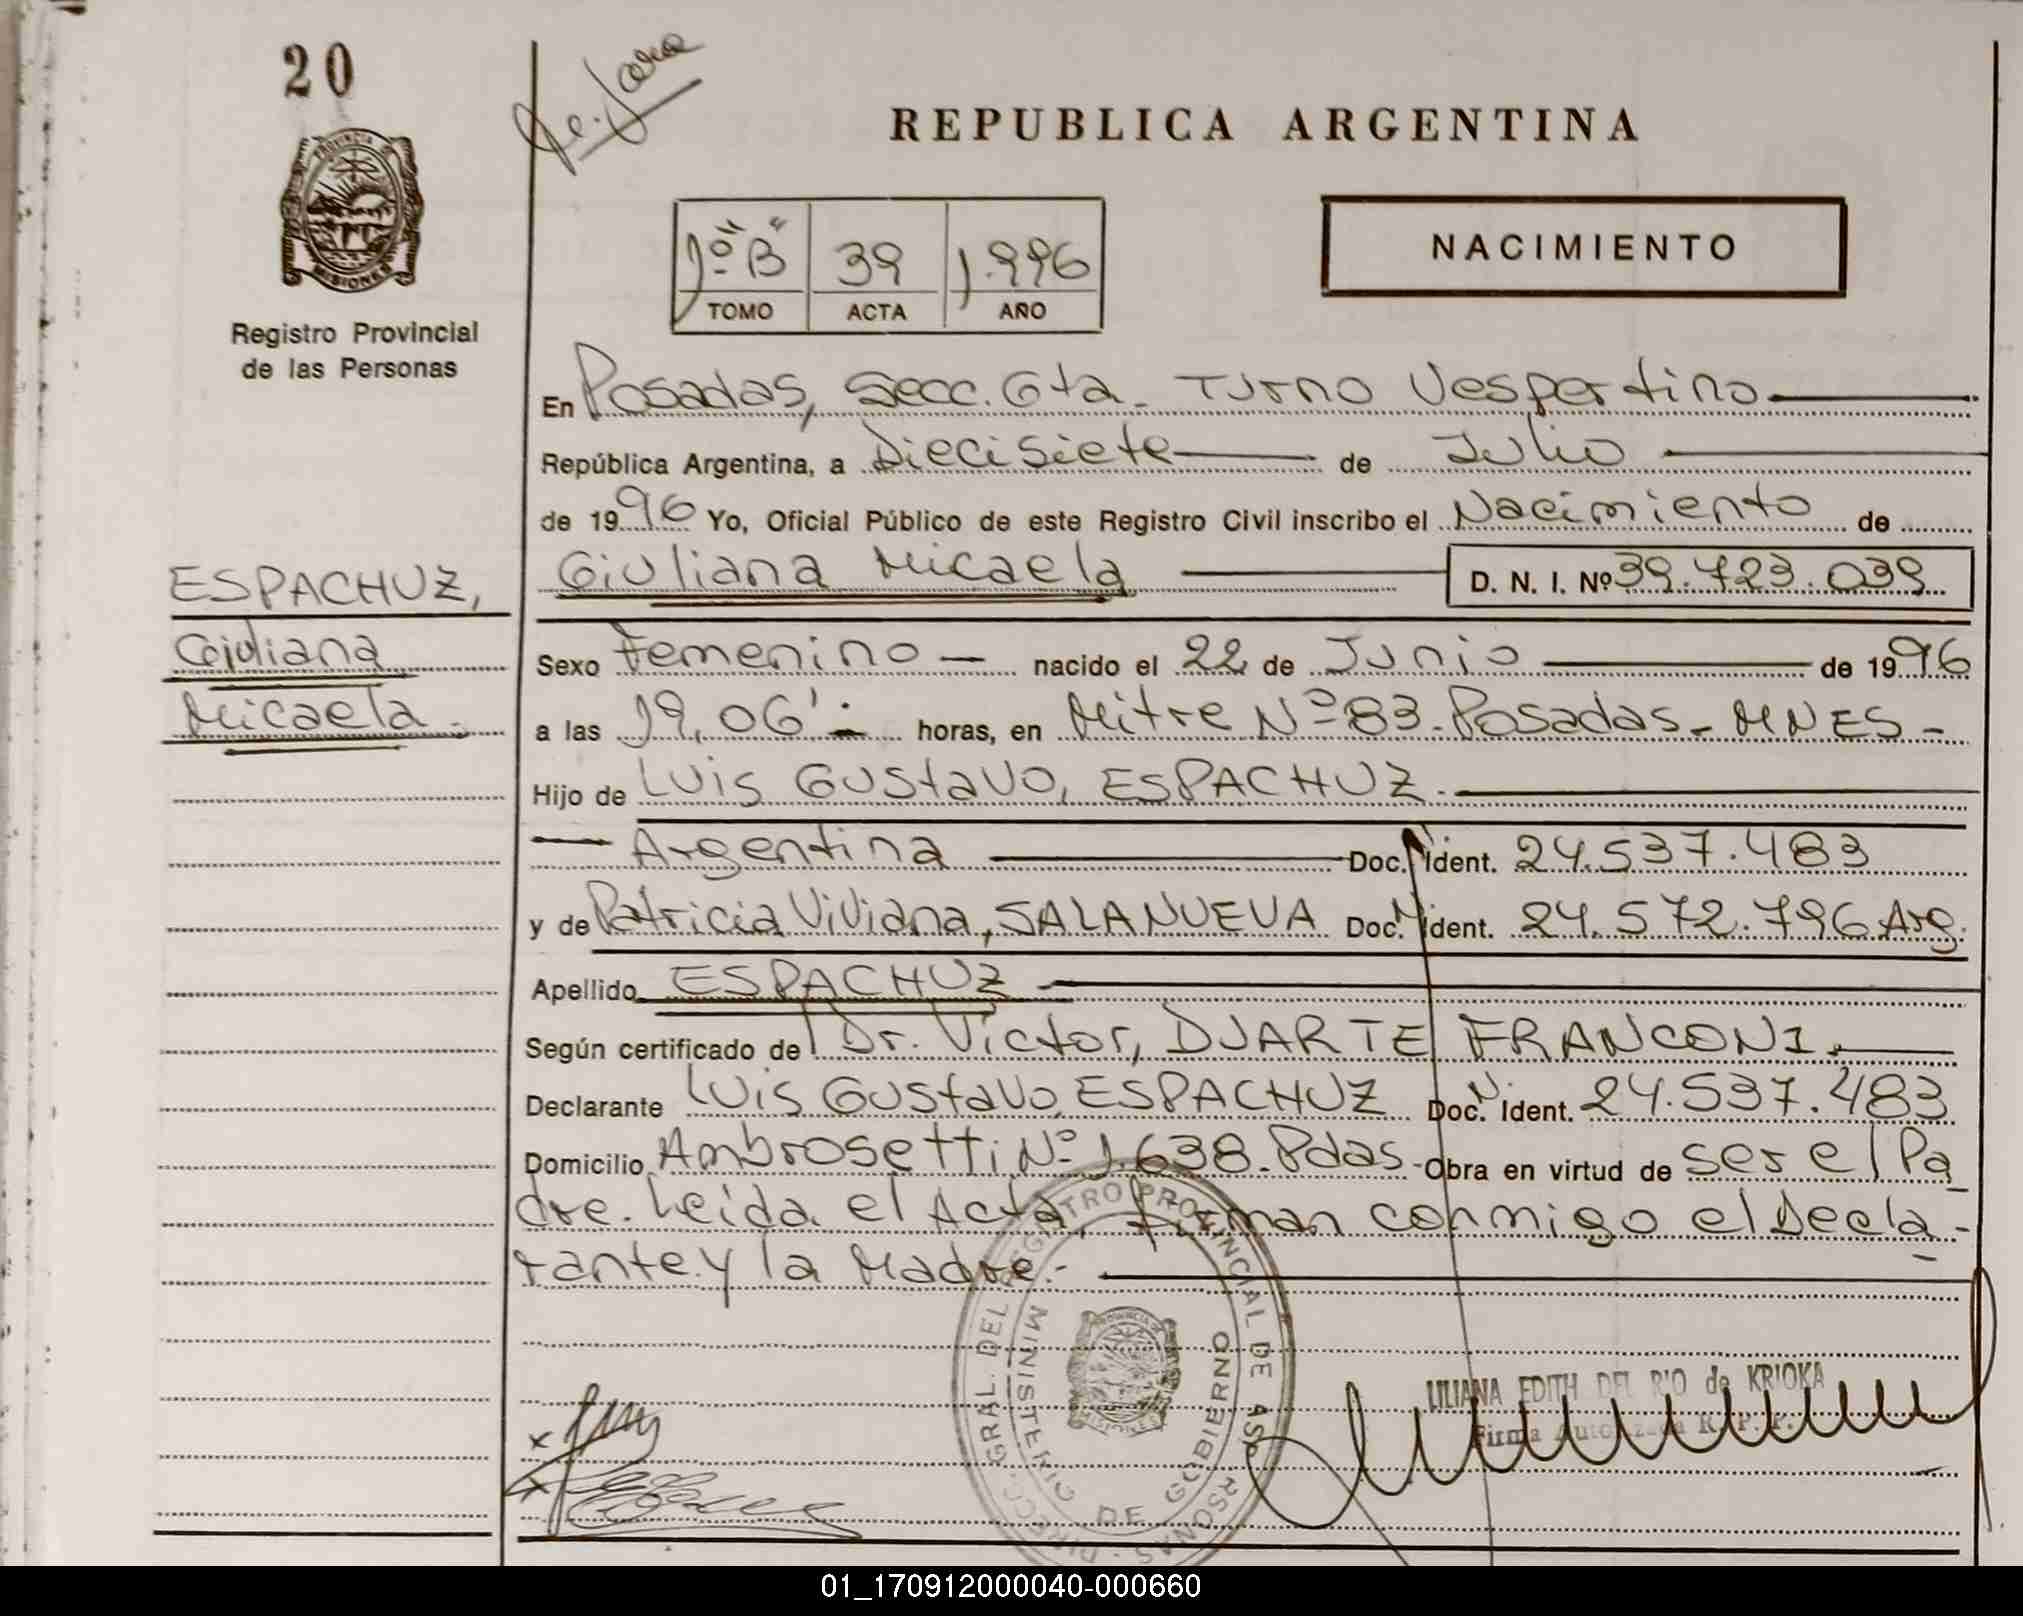 20
REPUBLICA ARGENTINA
PROVINCIA DE
MISIONES
Registro Provincial
de las Personas
1º "B" 39 1.996
TOMO ACTA AÑO
NACIMIENTO
En Posadas, Secc. 6ta. Turno Vespertino
República Argentina, a Diecisiete de Julio
de 1996 Yo, Oficial Público de este Registro Civil inscribo el Nacimiento de
Giuliana Micaela D. N. I. Nº 39.723.039
ESPACHUZ,
Giuliana
Micaela.
Sexo Femenino — nacido el 22 de Junio de 1996
a las 19,06' horas, en Mitre Nº 83. Posadas - MNES -
Hijo de Luis Gustavo, ESPACHUZ.
Argentina Doc. N. Ident. 24.537.483
y de Patricia Viviana, SALANUEVA Doc. N. Ident. 24.572.796 Arg.
Apellido ESPACHUZ
Según certificado de Dr. Victor, DUARTE FRANCONI.
Declarante Luis Gustavo, ESPACHUZ Doc. N. Ident. 24.537.483
Domicilio Ambrosetti Nº 1.638. Pdas.- Obra en virtud de ser el Pa
dre. Leida el Acta, firman conmigo el Decla-
rante y la Madre.-
DIRECC. GRAL. DEL REGISTRO PROVINCIAL DE AS PERSONAS
MINISTERIO DE GOBIERNO
PROVINCIA DE
MISIONES
LILIANA EDITH DEL RIO de KRIOKA
Firma Autorizada R. P. P.
01_170912000040-000660